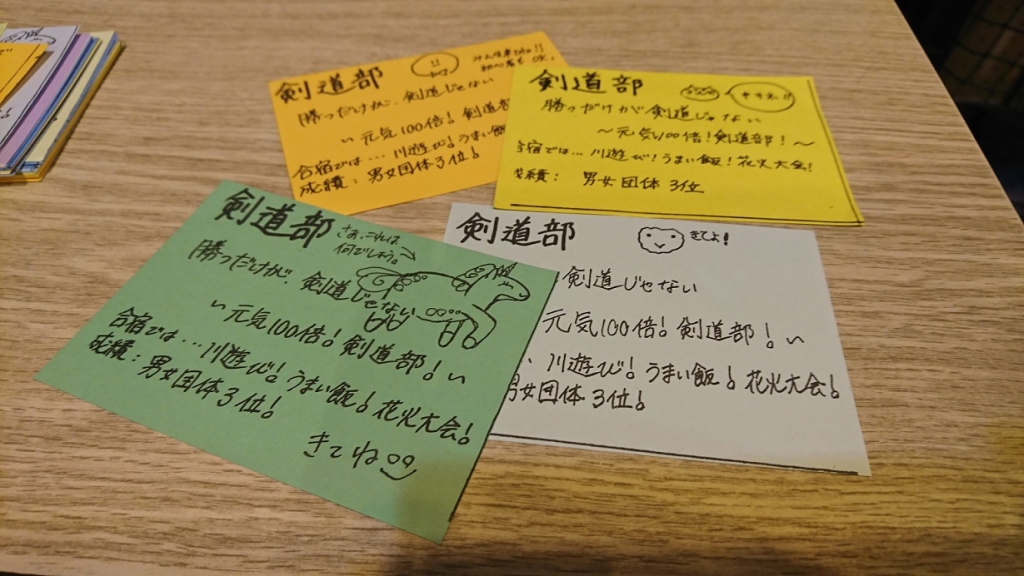 剣道部
勝つだけが、剣道じゃない
〜元気100倍!剣道部
合宿では…川遊び!うまい飯
成績:男女団体3位!
剣道部
勝つだけが剣道じゃない
〜元気100倍!剣道部!〜
合宿では…川遊び!うまい飯!花火大会!
成績: 男女団体3位
剣道部
さあ、これは
何でしょう。→
勝つだけが、剣道じゃない
〜元気100倍!剣道部!〜
合宿では…川遊び!うまい飯!花火大会!
成績:男女団体3位!
きてね
剣道部
きてよ!
剣道じゃない
元気100倍!剣道部!〜
川遊び!うまい飯!花火大会!
男女団体3位!